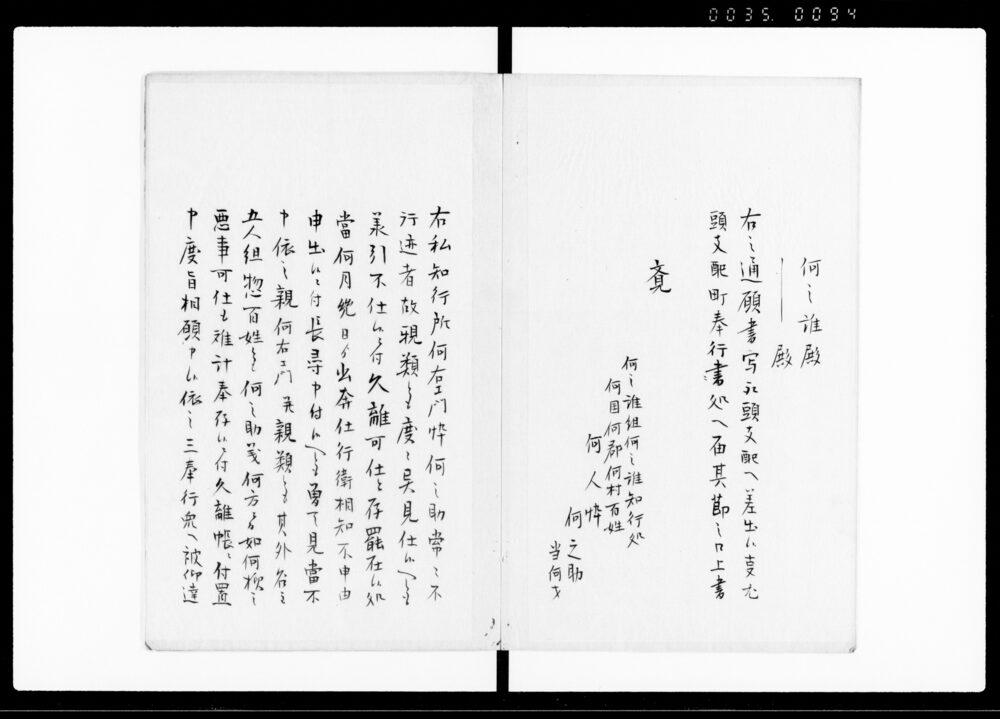 0035. 0094
何之誰殿
殿
右之通願書写取頭支配へ差出候支尤
頭支配町奉行書処へ届其節之口上書
覚
何之誰組何之誰知行処
何国何郡何村百姓
何人忰
何之助
当何才
右私知行所何右衛門忰何之助常々不
行迹者故親類も度々異見仕候へとも
承引不仕候ニ付久離可仕と存罷在候処
當何月幾日ゟ出奔仕行衛相知不申由
申出候ニ付長尋申付候へとも見當不
申依之親何右衛門并親類とも其外名主
五人組惣百姓とも何之助義何方ニ而如何様之
悪事可仕も難計奉存候ニ付久離帳ニ付置
申度旨相願申候依之三奉行衆へ被仰達